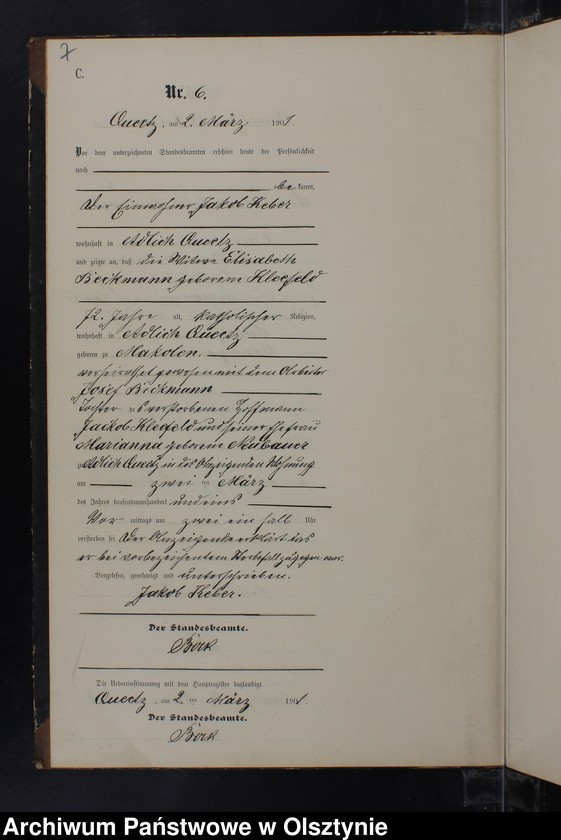 7
C.
Nr. 6.
Quetz, am 2. März 1901
Vor dem unterzeichneten Standesbeamten erschien heute der Persönlichkeit
nach
be kannt,
der Einwohner Jakob Keber
wohnhaft in Adlich Quetz
und zeigte an, daß die Witwe Elisabeth
Beckmann geborene Kleefeld
72 Jahre alt, katholischer Religion,
wohnhaft in Adlich Quetz
geboren zu Makolen.
verheirathet gewesen mit dem Arbeiter
Josef Beckmann
Tochter des verstorbenen
Jackob Kleefeld und seiner Ehefrau
Marianna geborene Neubauer
zu Adlich Quetz in des Anzeigenden Wohnung
am zwei ten März
des Jahres tausendneunhundert und eins
Vor mittags um zwei ein halb Uhr
verstorben sei Der Anzeigende erklärt das
er bei vorbezeichnetem Sterbefall zugegen war.
Vorgelesen, genehmigt und unterschrieben.
Jakob Keber.
Der Standesbeamte.
Böck
Die Uebereinstimmung mit dem Hauptregister beglaubigt
Quetz, am 2 ten März 1901.
Der Standesbeamte.
Böck
Archiwum Państwowe w Olsztynie